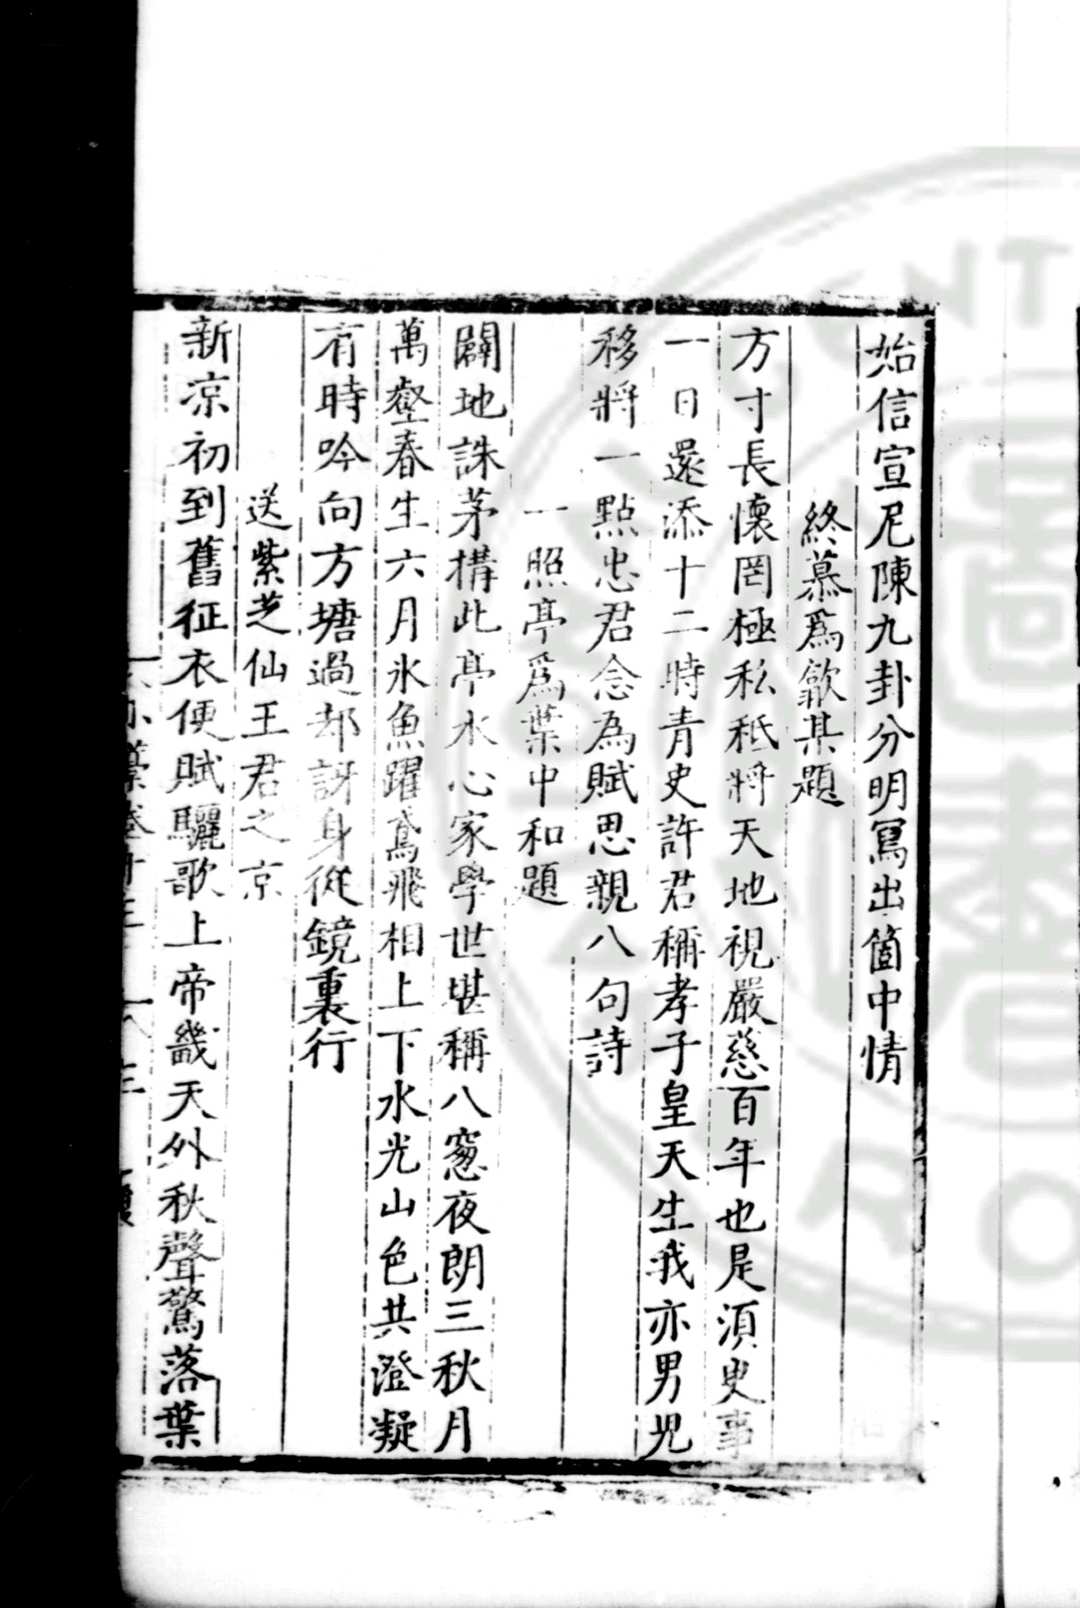 始信宣尼陳九卦分明冩出箇中情
終慕爲歙某題
方寸長懷罔極私秪將天地視嚴慈百年也是須臾事
一日還添十二時青史許君稱孝子皇天生我亦男児
移將一點忠君念為賦思親八句詩
一照亭爲葉中和題
闢地誅茅構此亭水心家學世堪稱八窻夜朗三秋月
萬壑春生六月氷魚躍鳶飛相上下水光山色共澄凝
有時吟向方塘過却訝身從鏡裏行
送紫芝仙王君之京
新凉初到舊征衣便賦驪歌上帝畿天外秋聲驚落葉